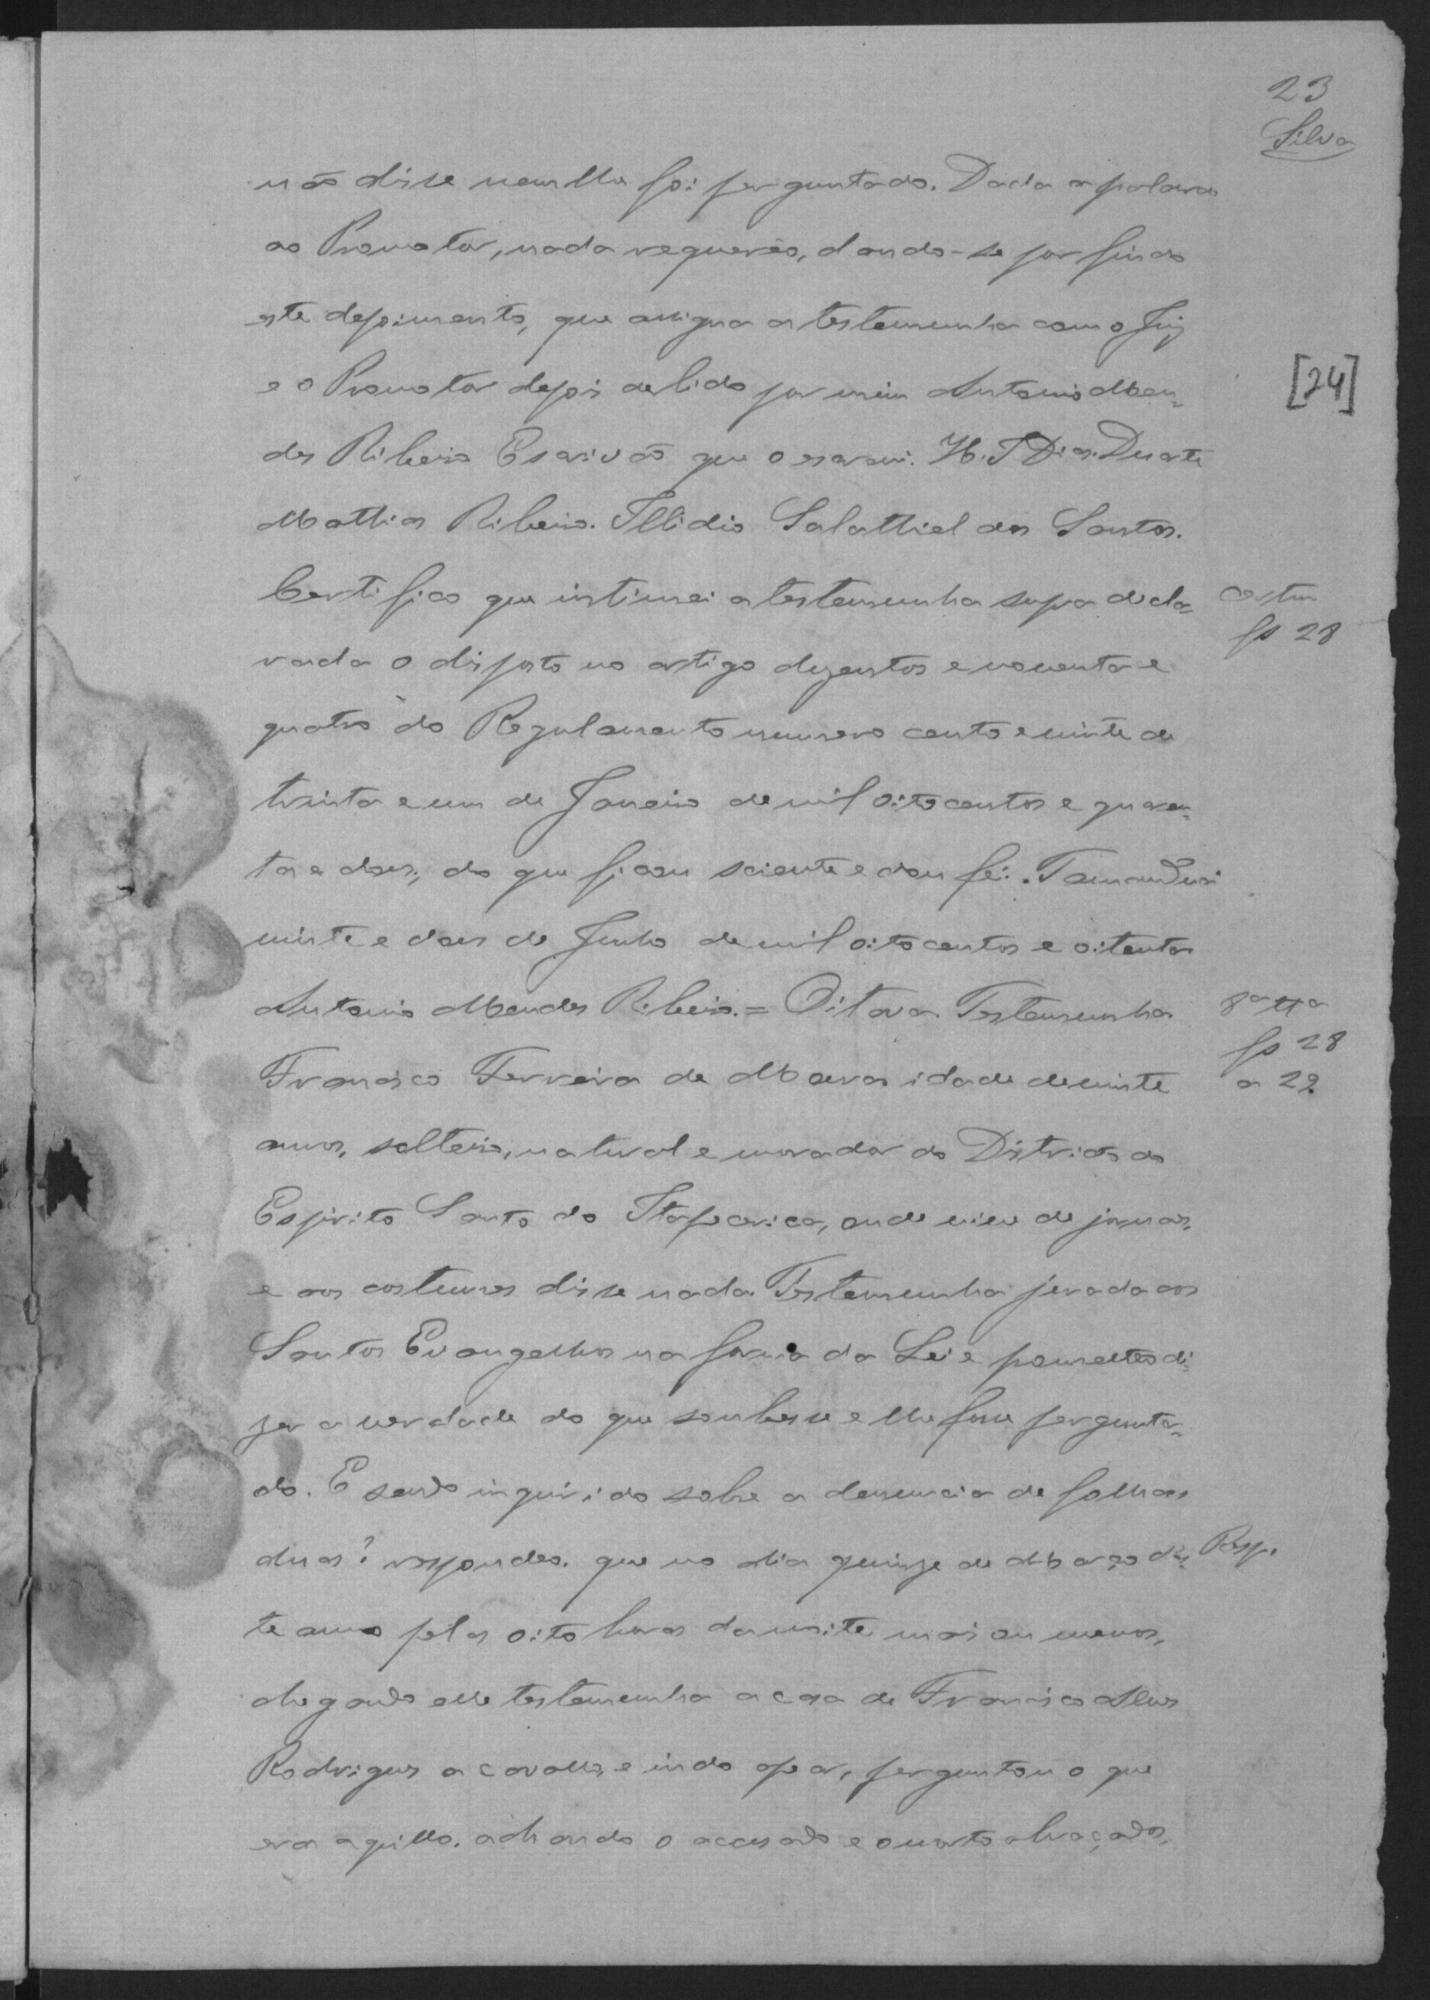 23
Silva
não disse nem lhe foi perguntado. Dada a palavra
ao Promotor, nada requereo, dando-se por findo
este depoimento, que assigna a testemunha com o Juiz
e o Promotor depois de lido por mim Antonio Men=
[24]
des Ribeiro Escrivão que o escrevi. H. T Dias. Duarte
Mathias Ribeiro. Illidio Salathiel dos Santos.
Certifico que intimei a testemunha supra decla=
certm
fs 28
rada o disposto no artigo duzentos e noventa e
quatro do Regulamento numero cento e vinte de
trinta e um de Janeiro de mil oito centos e quaren=
ta e dous; do que ficou sciente e dou fé. Tamanduá
vinte e dous de Junho de mil oito centos e oitenta
Antonio Mendes Ribeiro. = Oitava Testemunha
8ª ttª
fs 28
a 29
Francisco Ferreira de idade de vinte
annos, solteiro, natural e morador do Districto do
Espirito Santo do Itapecerica, onde vive de jornaes,
e aos costumes disse nada. Testemunha jurada aos
Santos Evangelhos na forma da Lei e prometteo di=
zer a verdade do que soubesse e lhe fosse pergunta=
do. E sendo inquirido sobre a denuncia de folhas
duas? respondeo. que no dia quinze de Março des=
Resp.
te anno pelas oito horas da noite mais ou menos,
chegando elle testemunha a casa de Francisco Alves
Rodrigues a cavallo, e indo apear, perguntou o que
era aquillo. achando o accusado e o morto abraçados,